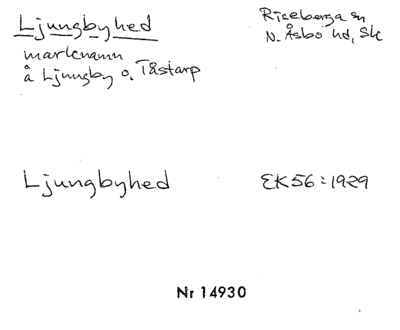 Ljungbyhed
Riseberga sn
N. Åsbo hd, Sk
marknamn
å Ljungby o. Tåstarp
Ljungbyhed
EK56:1929
Nr 14930